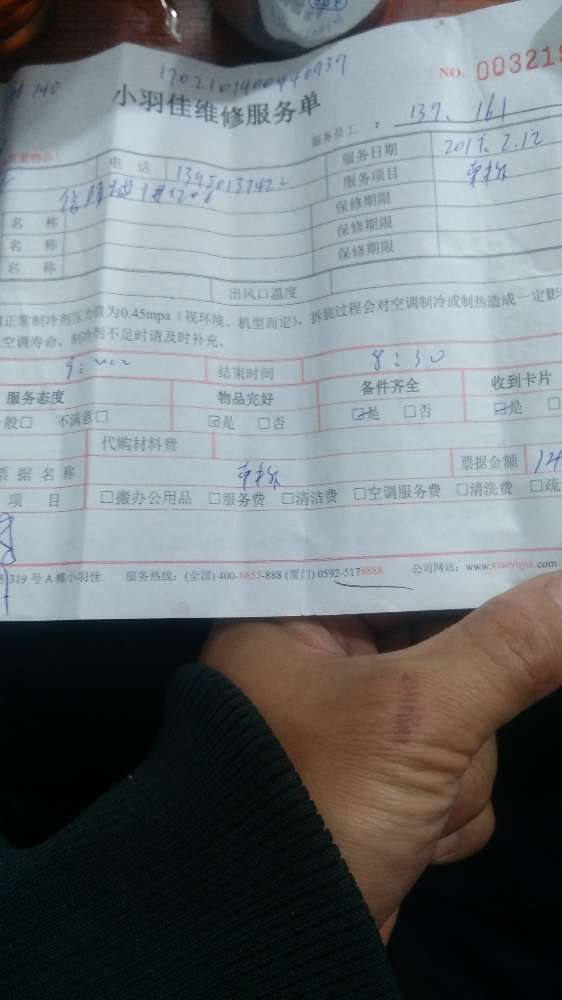 140
1702101400440939
NO. 003215
小羽佳维修服务单
服务员工 : 139、161
电 话 服务日期 2017.2.12
服务项目
名 称 保修期限
名 称 保修期限
名 称 保修期限
出风口温度
正常制冷剂压力值为0.45mpa（视环境、机型而定），拆装过程会对空调制冷或制热造成一定影
空调寿命，制冷剂不足时请及时补充。
结束时间 8:30
服务态度 物品完好 备件齐全 收到卡片
般□ 不满意□ ☑是 □否 ☑是 □否 ☑是 □
代购材料费
票据名称 票据金额 14
项 目 □搬办公用品 □服务费 □清洁费 □空调服务费 □清洗费 □疏
319 号 A 幢小羽佳 服务热线：(全国) 400-6655-888 (厦门) 0592-5178888 公司网站：www.xiaoyujia.com